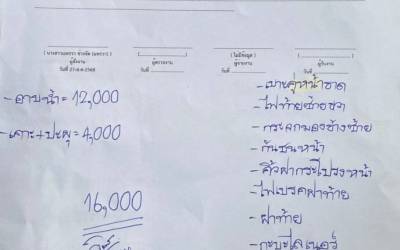 (นางสาวเมตรา ช่างยัด (เมตรา))
ผู้สั่งงาน
วันที่ 27-ธ.ค-2568
ผู้ตรวจงาน
วันที่
(ไม่มีข้อมูล)
ผู้จ่ายงาน
วันที่
ผู้รับงาน
วันที่
-อาบน้ำ = 12,000
-เคาะ+ปะผุ = 4,000
16,000
-เบาะคู่หน้าขาด
-ไฟท้ายซ้ายขวา
-กระจกมองข้างซ้าย
-กันชนหน้า
-คิ้วฝากระโปรงหน้า
-ไฟเบรคฝาท้าย
-ฝาท้าย
-กะบะไลเนอร์